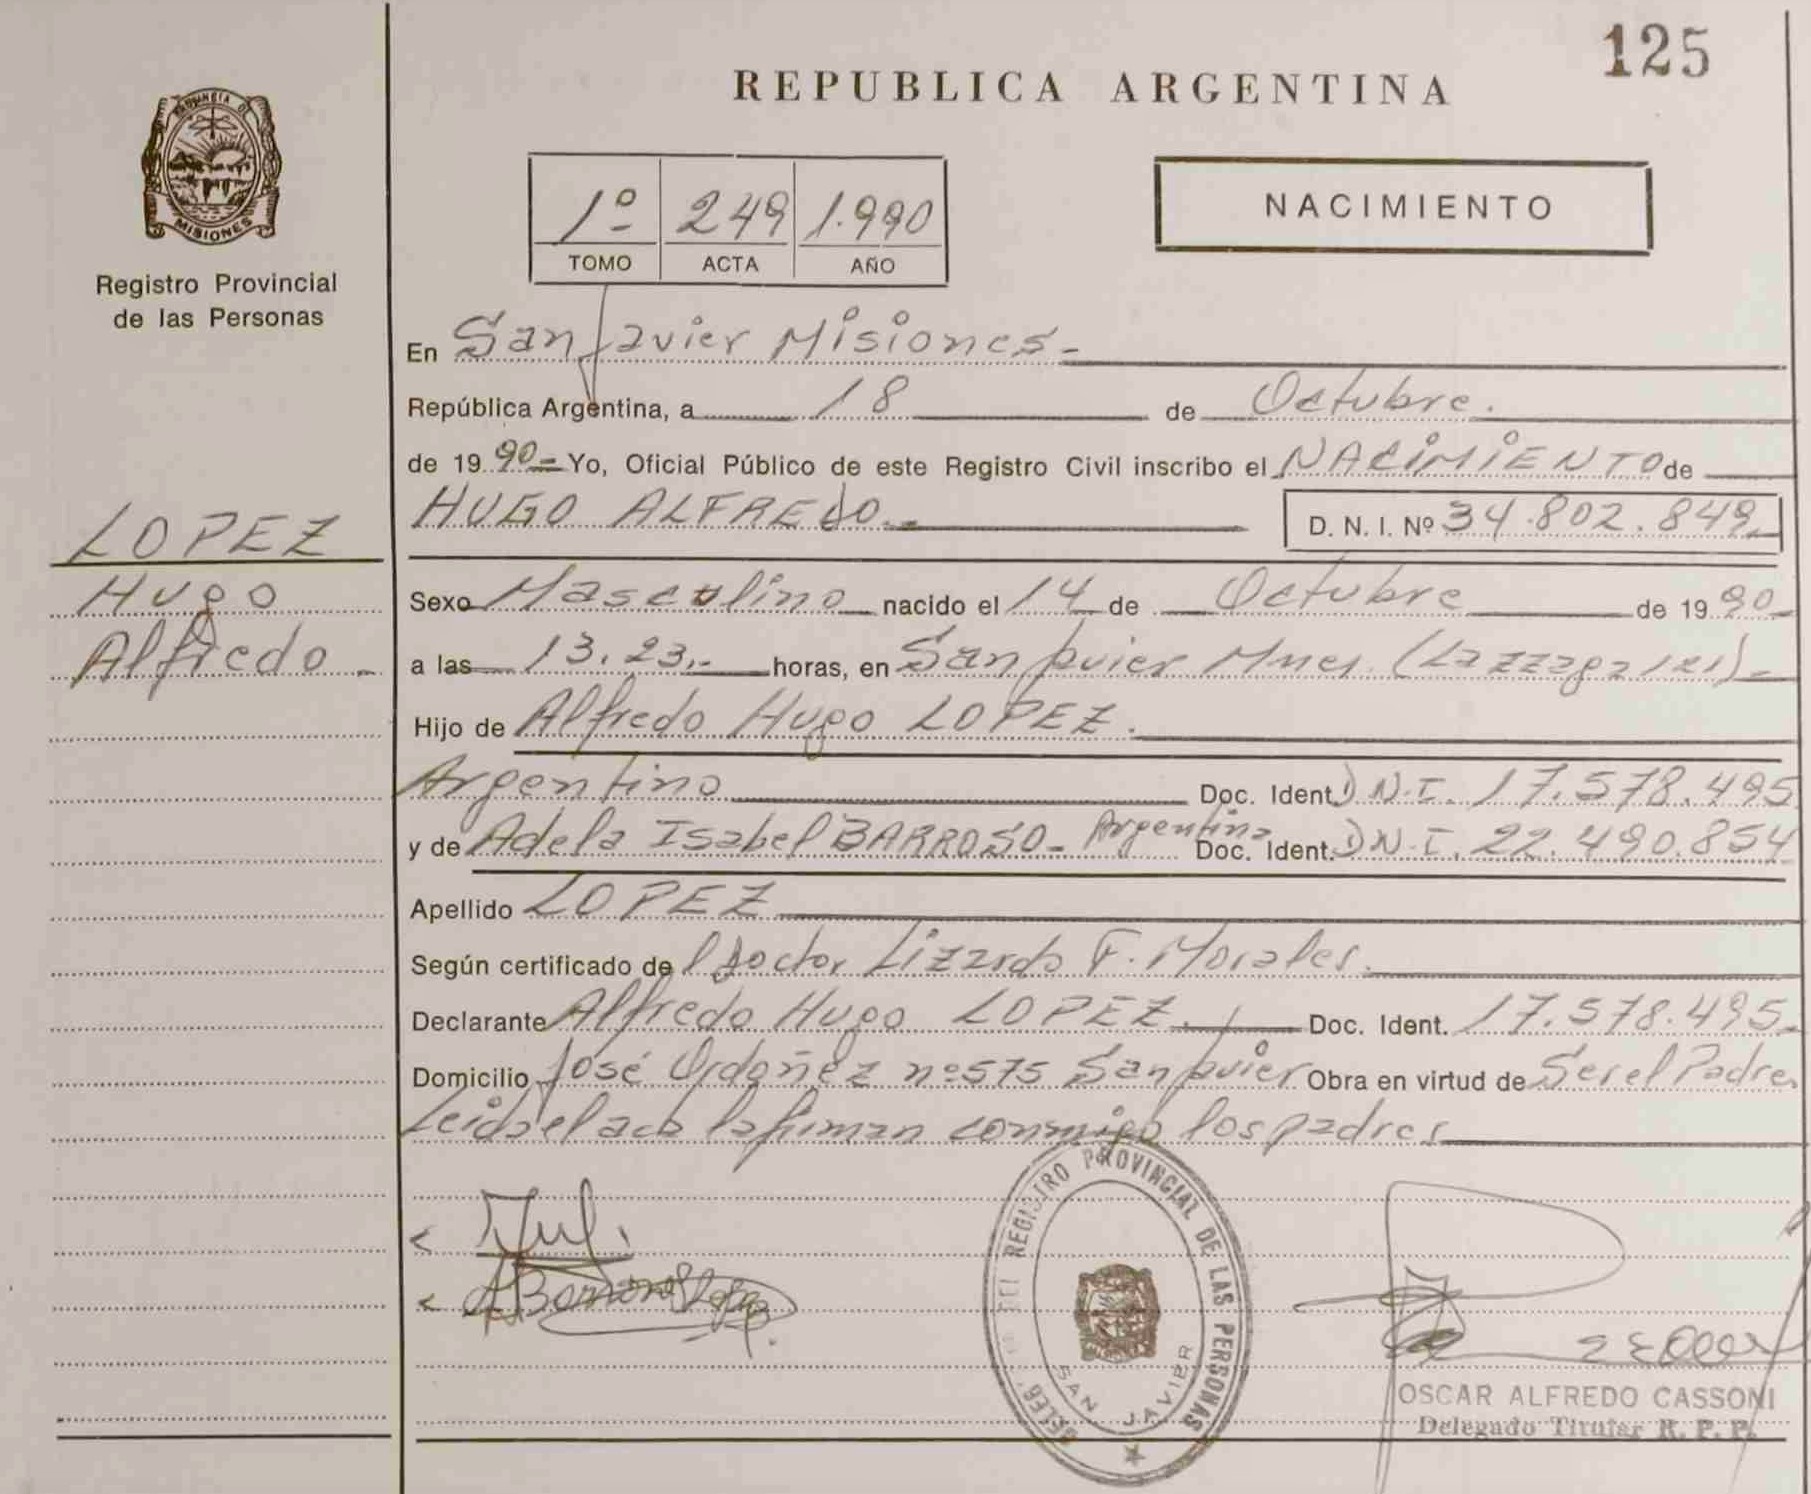 125
REPUBLICA ARGENTINA
PROVINCIA DE
MISIONES
Registro Provincial
de las Personas
1º 249 1.990
TOMO ACTA AÑO
NACIMIENTO
En San Javier Misiones.-
República Argentina, a 18 de Octubre.
de 19 90 = Yo, Oficial Público de este Registro Civil inscribo el NACIMIENTO de
HUGO ALFREDO.- D. N. I. Nº 34.802.849.-
LOPEZ
Hugo
Alfredo.-
Sexo Masculino nacido el 14 de Octubre de 19 90-
a las 13.23.- horas, en San Javier Mnes.
Hijo de Alfredo Hugo LOPEZ.
Argentino Doc. Ident. D.N.I. 17.578.495
y de Adela Isabel BARROSO- Argentina Doc. Ident. D.N.I. 22.490.854
Apellido LOPEZ
Según certificado del Doctor Lizardo F. Morales.
Declarante Alfredo Hugo LOPEZ. Doc. Ident. 17.578.495-
Domicilio José Ordoñez nº575 San Javier Obra en virtud de Ser el Padre
Leida el acta la firman conmigo los padres
DEL REGISTRO PROVINCIAL DE LAS PERSONAS
SAN JAVIER
OSCAR ALFREDO CASSONI
Delegado Titular R. P. P.